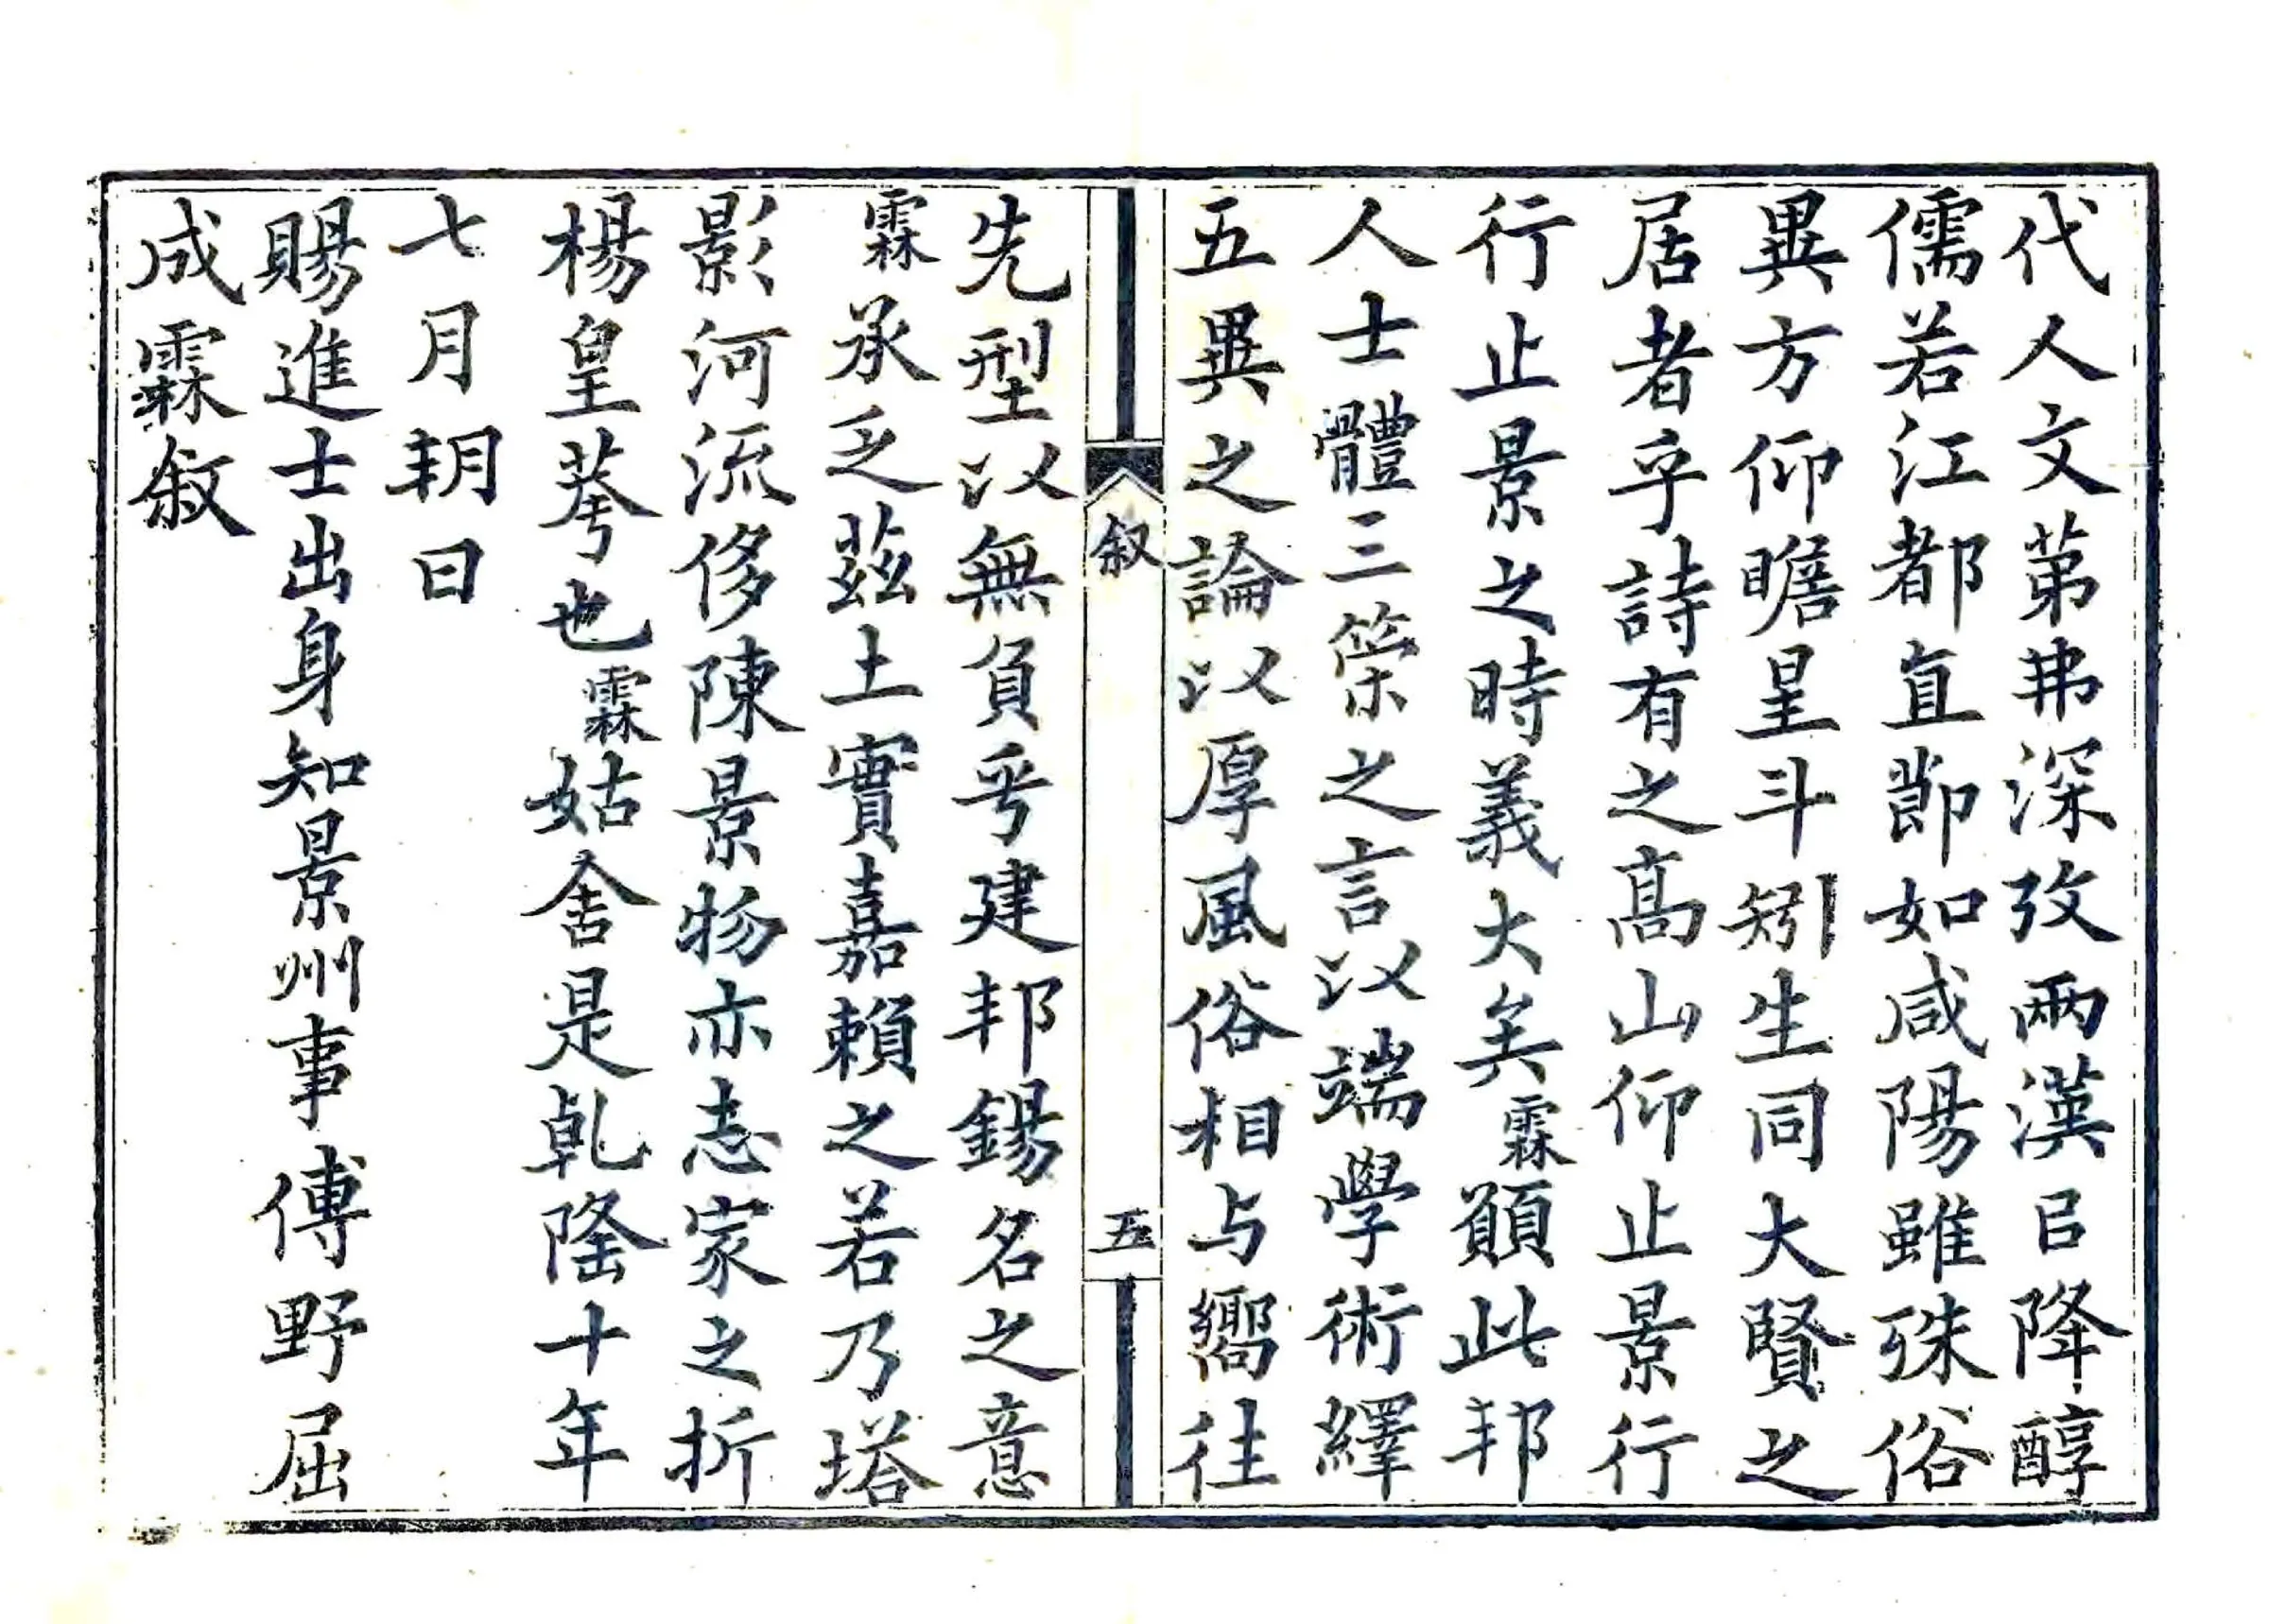 代人文第弗深攷兩漢㠯降醇
儒若江都直節如咸陽雖殊俗
異方仰瞻星斗矧生同大賢之
居者乎詩有之髙山仰止景行
行止景之時義大矣霖願此邦
人士體三䇿之言以端學術繹
五異之論以厚風俗相与嚮往
叙
五
先型以無負乎建邦錫名之意
霖承乏茲土實嘉賴之若乃塔
影河流侈陳景物亦志家之折
楊皇荂也霖姑舍是乹隆十年
七月朔日
賜進士出身知景州事傅野屈
成霖敘